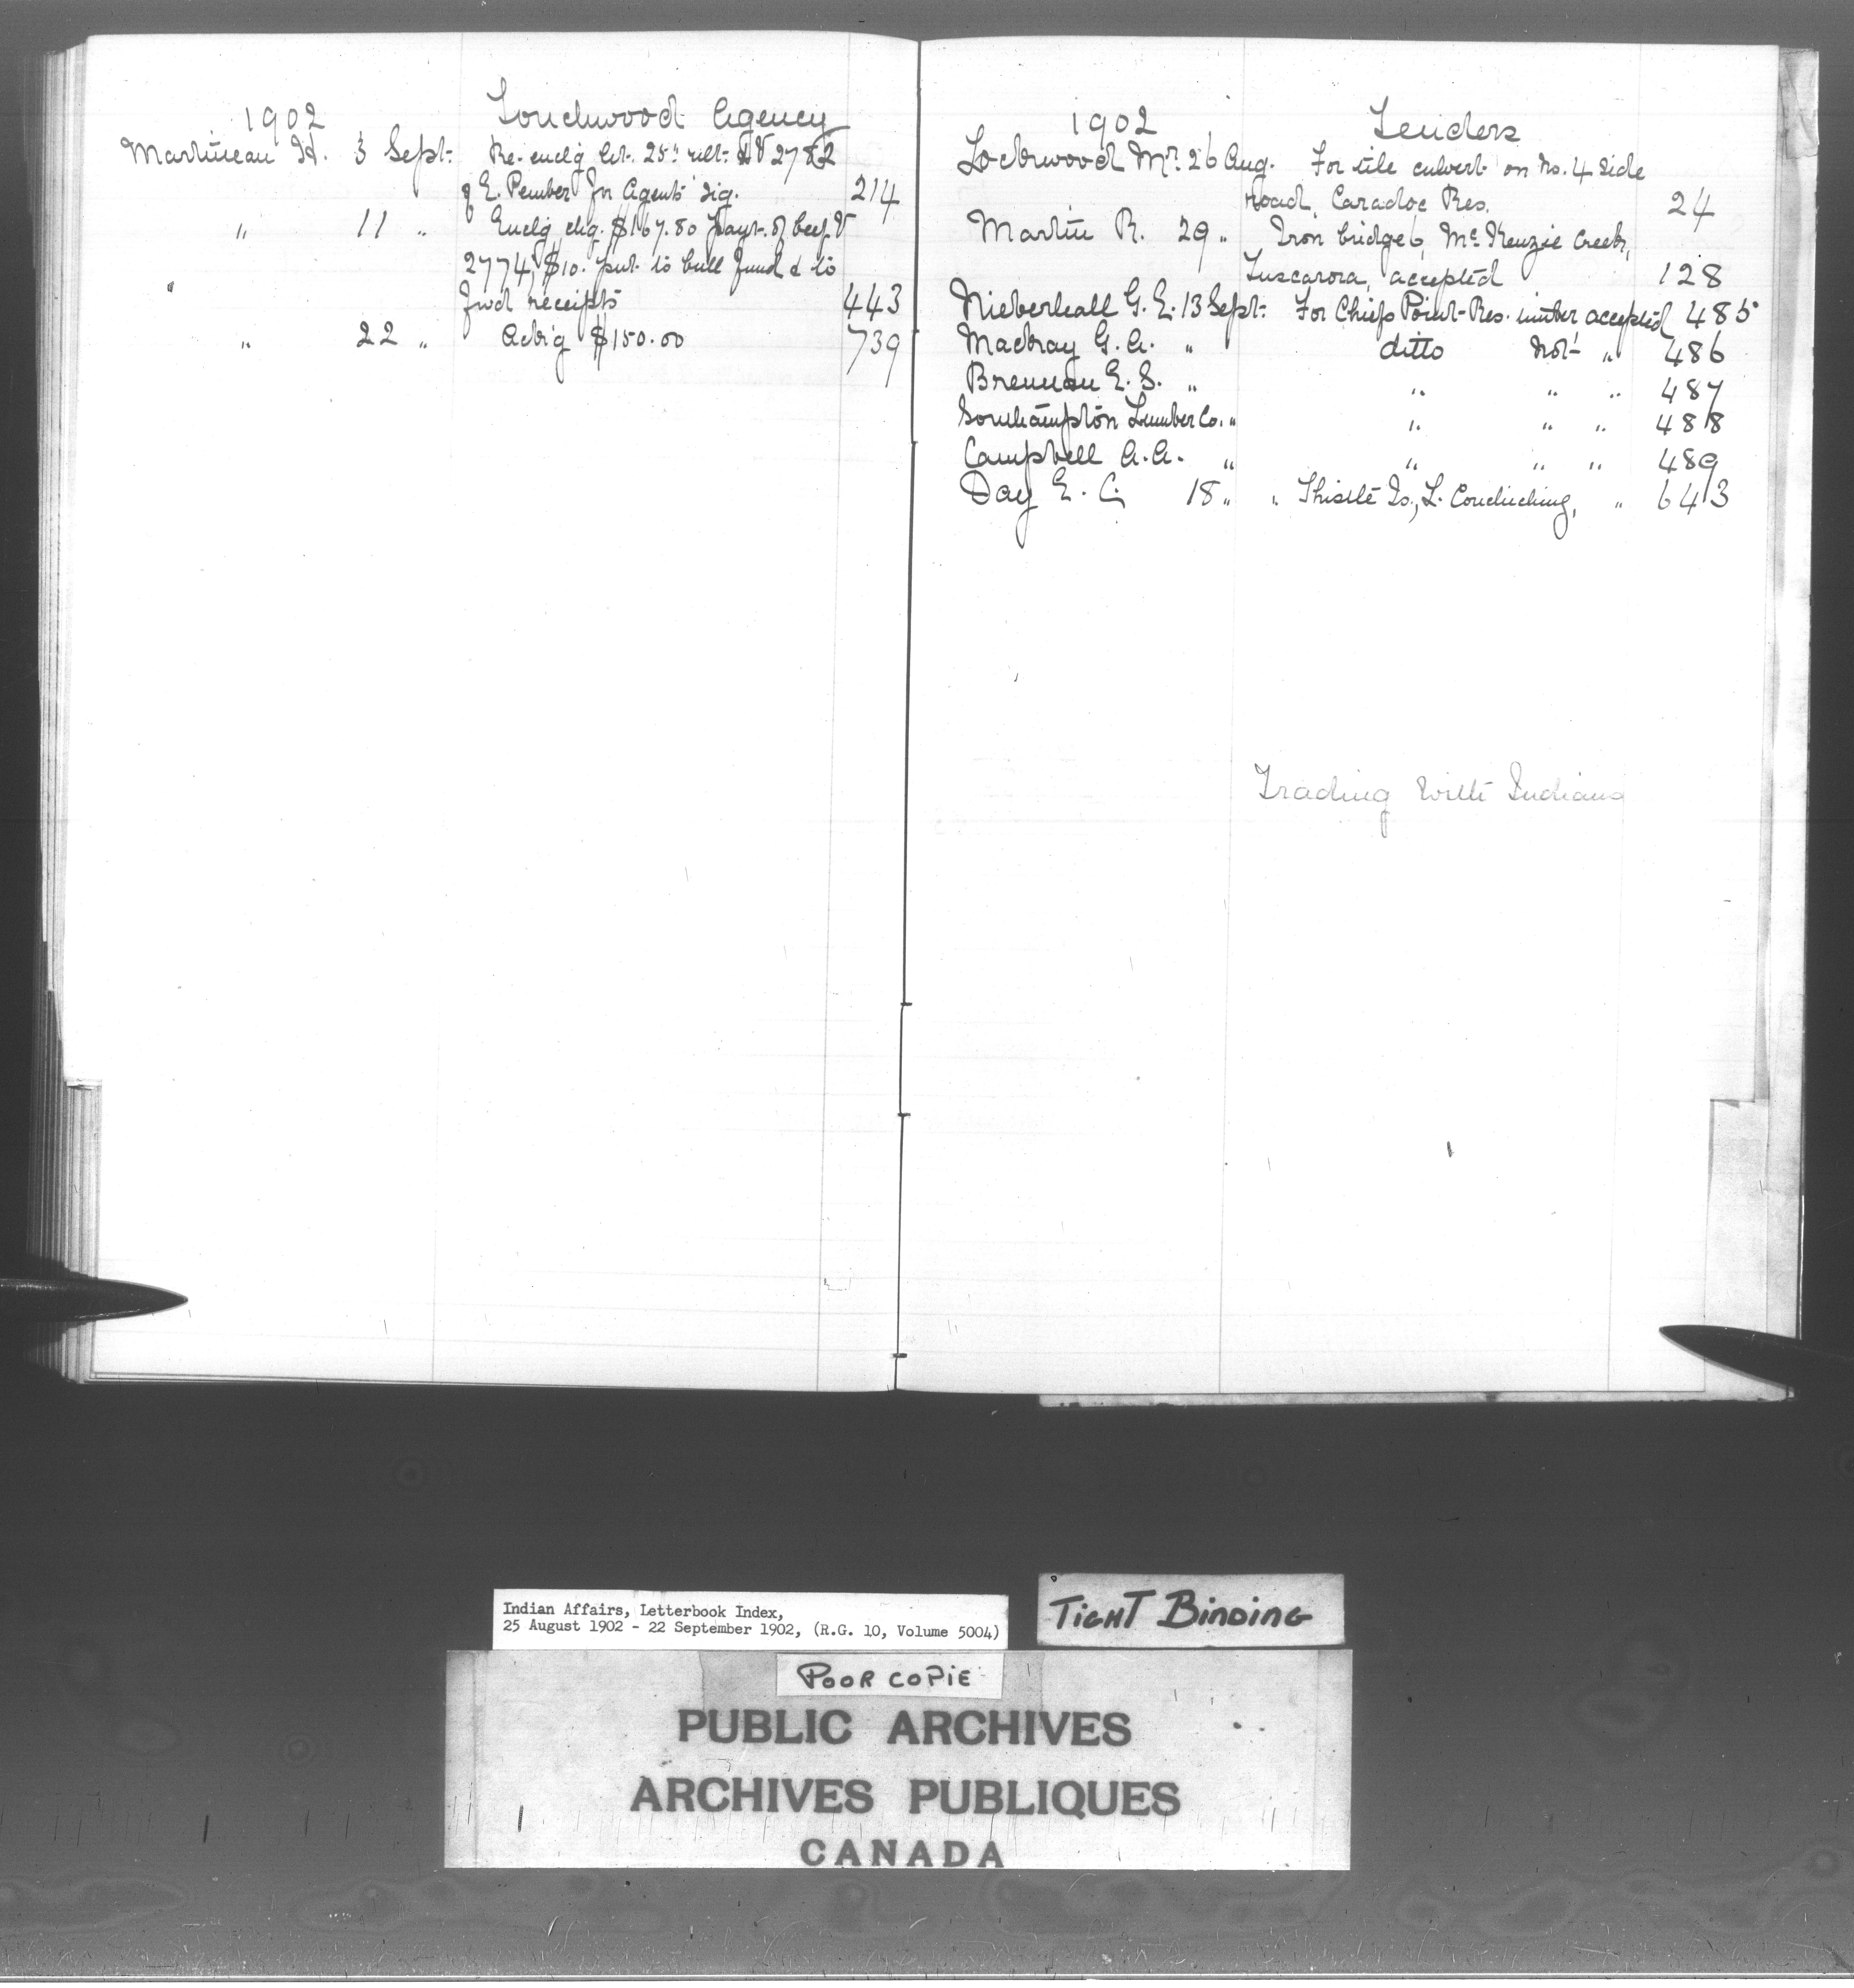 1902 Touchwood Agency
Martineau H. 3 Sept. Re-enclg let. 25th ult. & V 2782
of E. Pember for Agents sig. 214
" 11 " Enclg chq. $167.80 payt. of beef V
2774, $10. put to bull fund & to
fwd receipts 443
" 22 " Ackg $150.00 739
1902 Tenders
Lockwood Mr. 26 Aug. For tile culvert on No. 4 side
road, Caradoc Res. 24
Martin R. 29 " Iron bridge, McKenzie Creek,
Tuscarora, accepted 128
G. E. 13 Sept. For Chiefs Point Res. timber accepted 485
Mackay G. A. " ditto not " 486
Brennan E. S. " " " " 487
Southampton Lumber Co. " " " " 488
Campbell A. A. " " " " 489
Day E. C. 18 " " Thistle Is., L. Couchiching, " 643
Trading with Indians
Indian Affairs, Letterbook Index,
25 August 1902 - 22 September 1902, (R.G. 10, Volume 5004)
TIGHT BINDING
POOR COPIE
PUBLIC ARCHIVES
ARCHIVES PUBLIQUES
CANADA